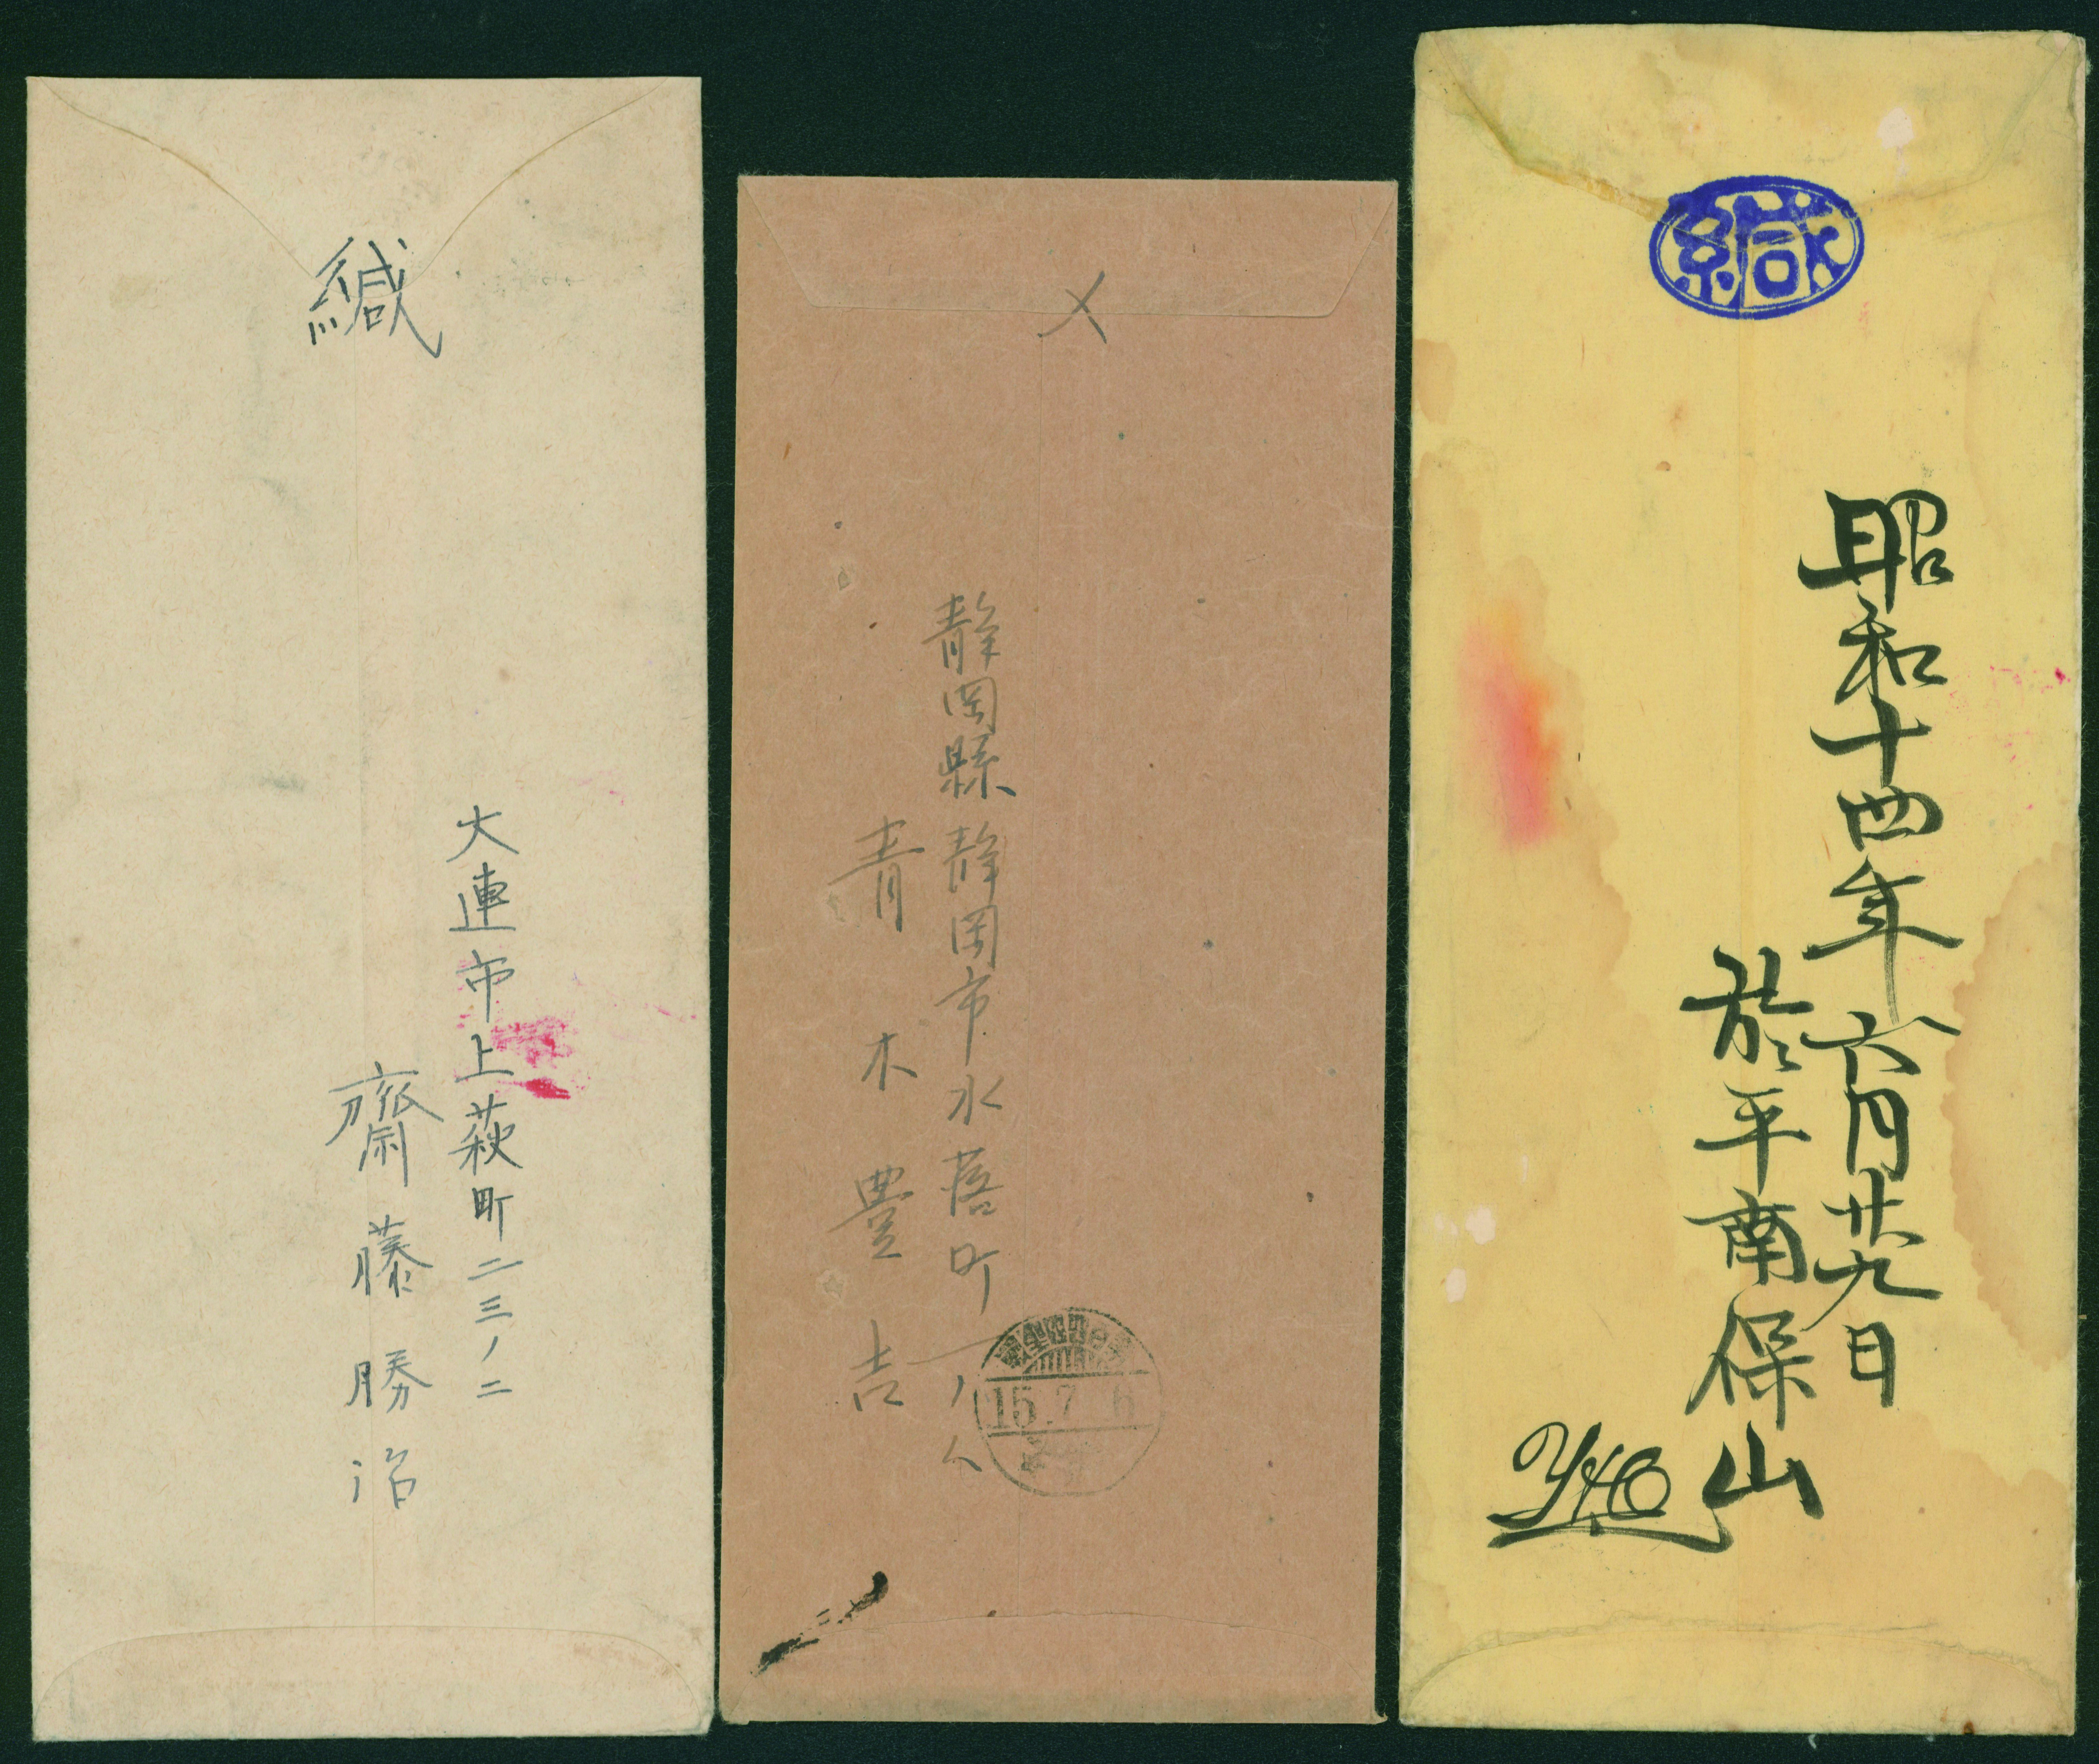 緘
大連市上萩町二三ノ二
齋藤勝治
〆
静岡縣静岡市水落町一ノ八
青木豊吉
15.7.6
緘
昭和十四年六月廿九日
於平南保山